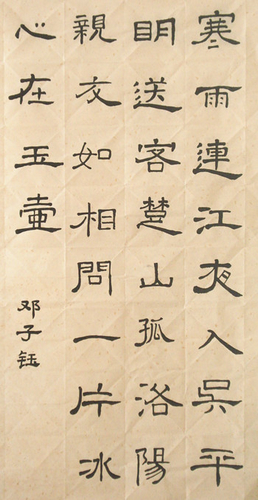 寒雨連江夜入吴平
明送客楚山孤洛陽
親友如相問一片冰
心在玉壷
邓子钰